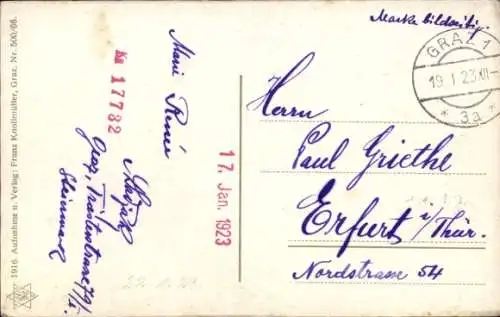 1916 Aufnahme u. Verlag: Franz Knollmüller, Graz. Nr. 500/66.
Marie Renée
Graz, Triesterstrasse 79/I.
Steiermark
Ka 17782
17. Jan. 1923
Marke bildseitig.
GRAZ 1
19.I.23.XII-
* 3a *
Herrn
Paul Griethe
Erfurt i/Thür.
Nordstrasse 54